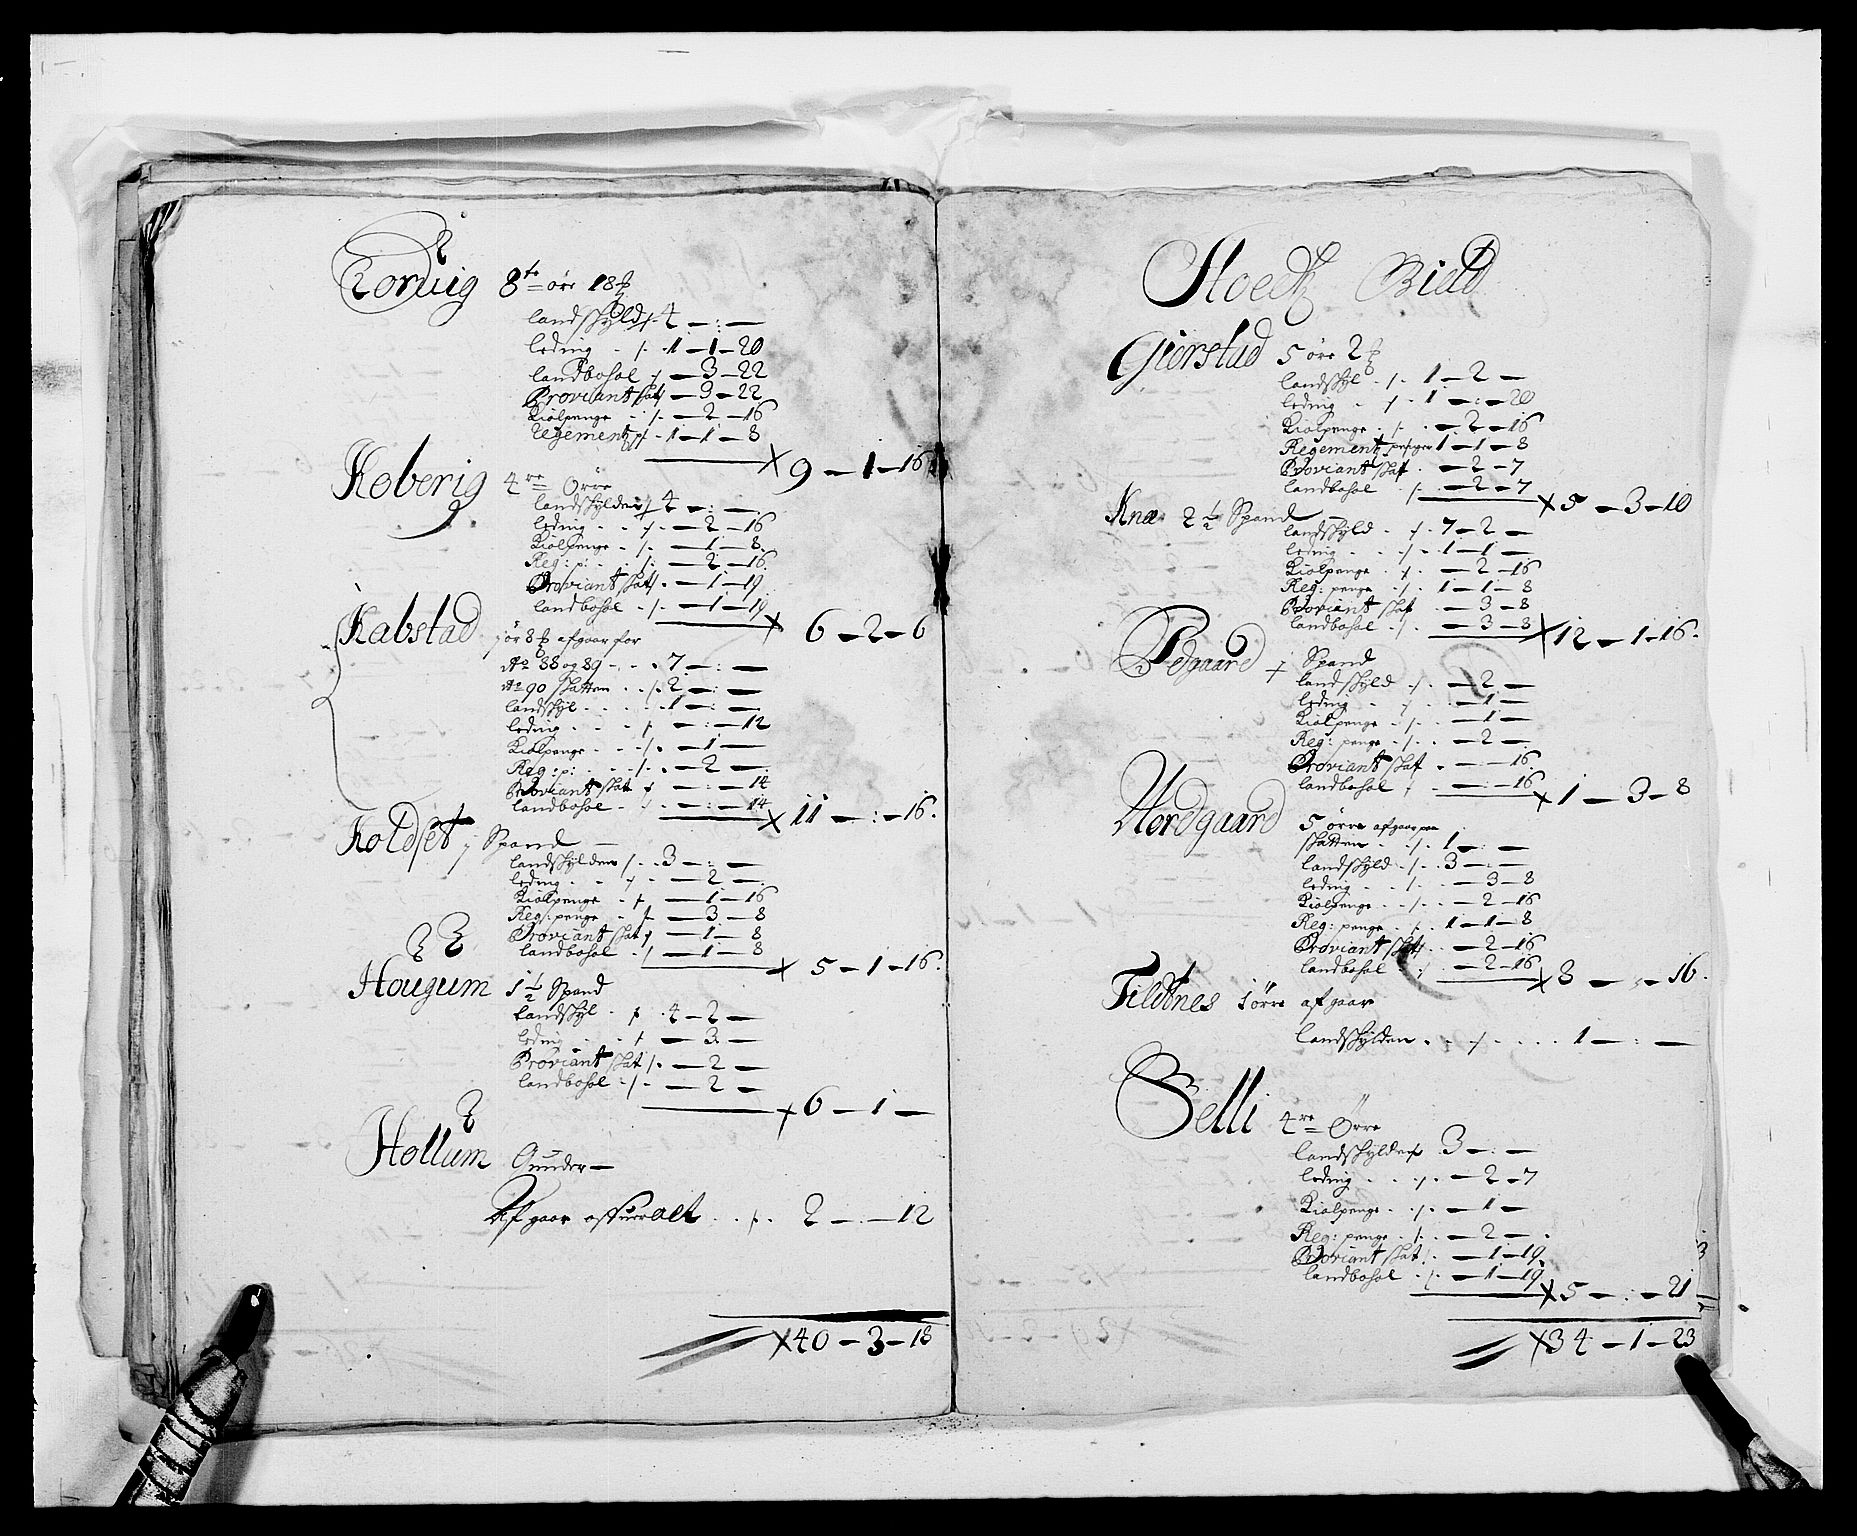 Torvig 8te øre 18
landskyld 4 — : —
leding 1 — 1 — 20
landbohol — 3 — 22
Proviant skat — 3 — 22
Kiølpenge — 2 — 16
regements p: 1 — 1 — 8
9 — 1 — 16
Køberig 4re Ørre
landskylden 4 — : —
leding — 2 — 16
Kiølpenge — 1 — 8
Reg: p: — 2 — 16
Proviant skat — 1 — 19
landbohol — 1 — 19
6 — 2 — 6
Kabstad 1 ør 8 afgaar for
Ao 88 og 89 7 — : —
Ao 90 skatten 2 — : —
landskyl 1 — : —
leding — : — 12
Kiølpenge — 1 —
Reg: p: — 2 —
Proviant skat — : — 14
landbohol — : — 14
11 — : — 16
Koldset 1 Spand
landskylden 3 — : —
leding — 2 —
Kiølpenge — 1 — 16
Reg: penge — 3 — 8
Proviant skat — 1 — 8
landbohol — 1 — 8
5 — 1 — 16
Hougum 1 1/2 Spand
landskyl 4 — 2 —
leding — 3 —
Proviant skat — 2 —
landbohol — 2 —
6 — 1 —
Hollum Gunder
Afgaar offueralt 2 — : — 12
40 — 3 — 18
Stoedz
Giørstad 5 øre 2
landskyl 1 — 2 —
leding 1 — : — 20
Kiølpenge — 2 — 16
Regements penger 1 — 1 — 8
Proviant skat — 2 — 7
landbohol — 2 — 7
5 — 3 — 10
Knæ 2 1/2 Spand
landskyld 7 — 2 —
leding 1 — 1 —
Kiølpenge — 2 — 16
Reg: penge 1 — 1 — 8
Proviant skat — 3 — 8
landbohol — 3 — 8
12 — 1 — 16
Spand
landskyld — 2 —
leding — 1 —
Kiølpenge — 1 —
Reg: penge — 2 —
Proviant skat — — 16
landbohol — — 16
1 — 3 — 8
Nordgaard 5 ørre afgaar paa
skatten 1 — : —
landskyld 3 — : —
leding — 3 — 8
Kiølpenge — 2 — 16
Reg: penge 1 — 1 — 8
Proviant skat — 2 — 16
landbohol — 2 — 16
8 — : — 16
Fildtnes 1 ørre afgaar
landskylden 1 — : —
Selli 4re Ørre
landskylden 3 — : —
leding — 2 — 7
Kiølpenge — 1 —
Reg: penge — 2 —
Proviant skat — 1 — 19
landbohol — 1 — 19
5 — : — 21
34 — 1 — 23